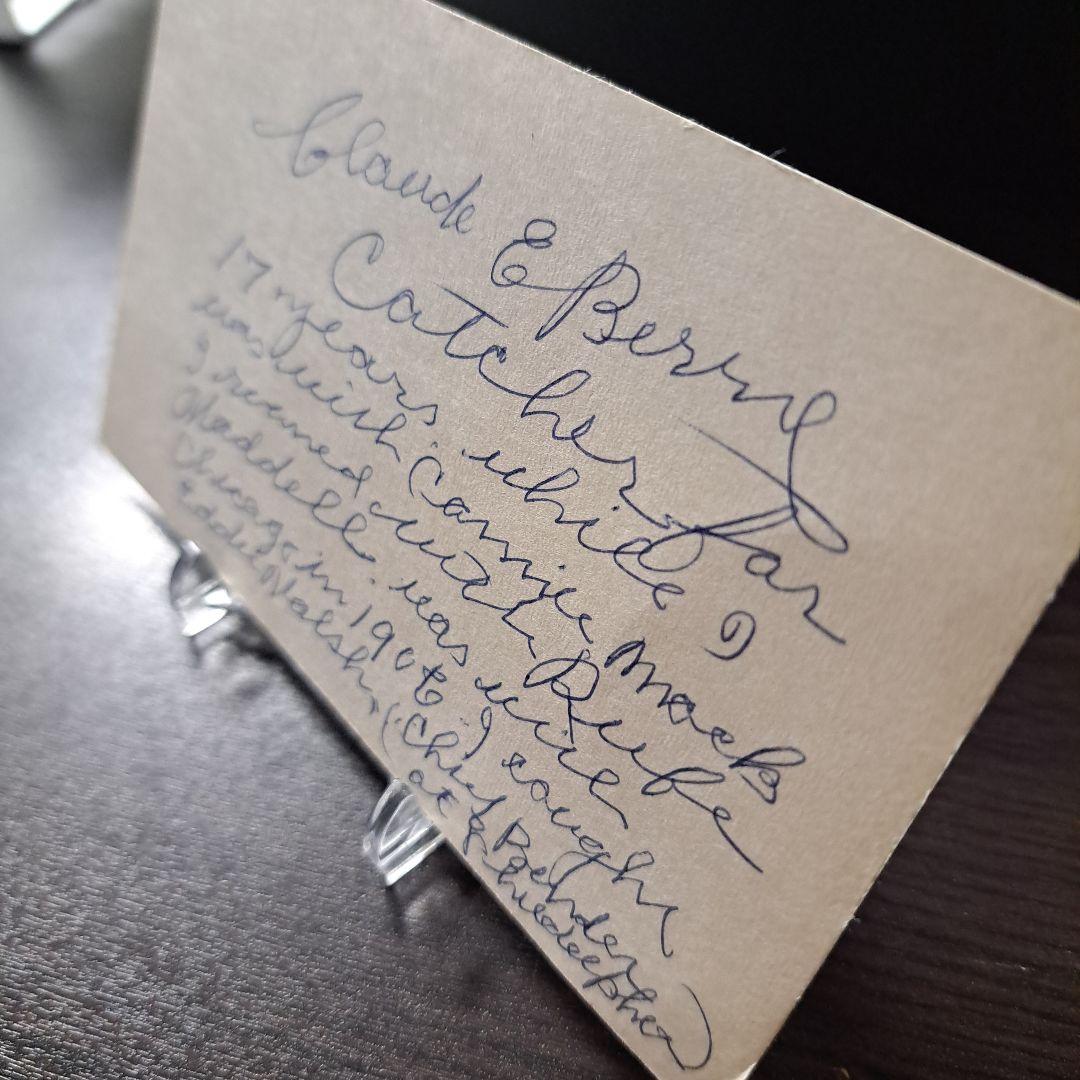 Claude E Berry
Catcher for
17 years while I
was with Connie Mack
I roomed with Rube
Waddell. was with
Chicago in 1904 caught
Eddie Walsh, (Chief Bender
at Philadelphia)